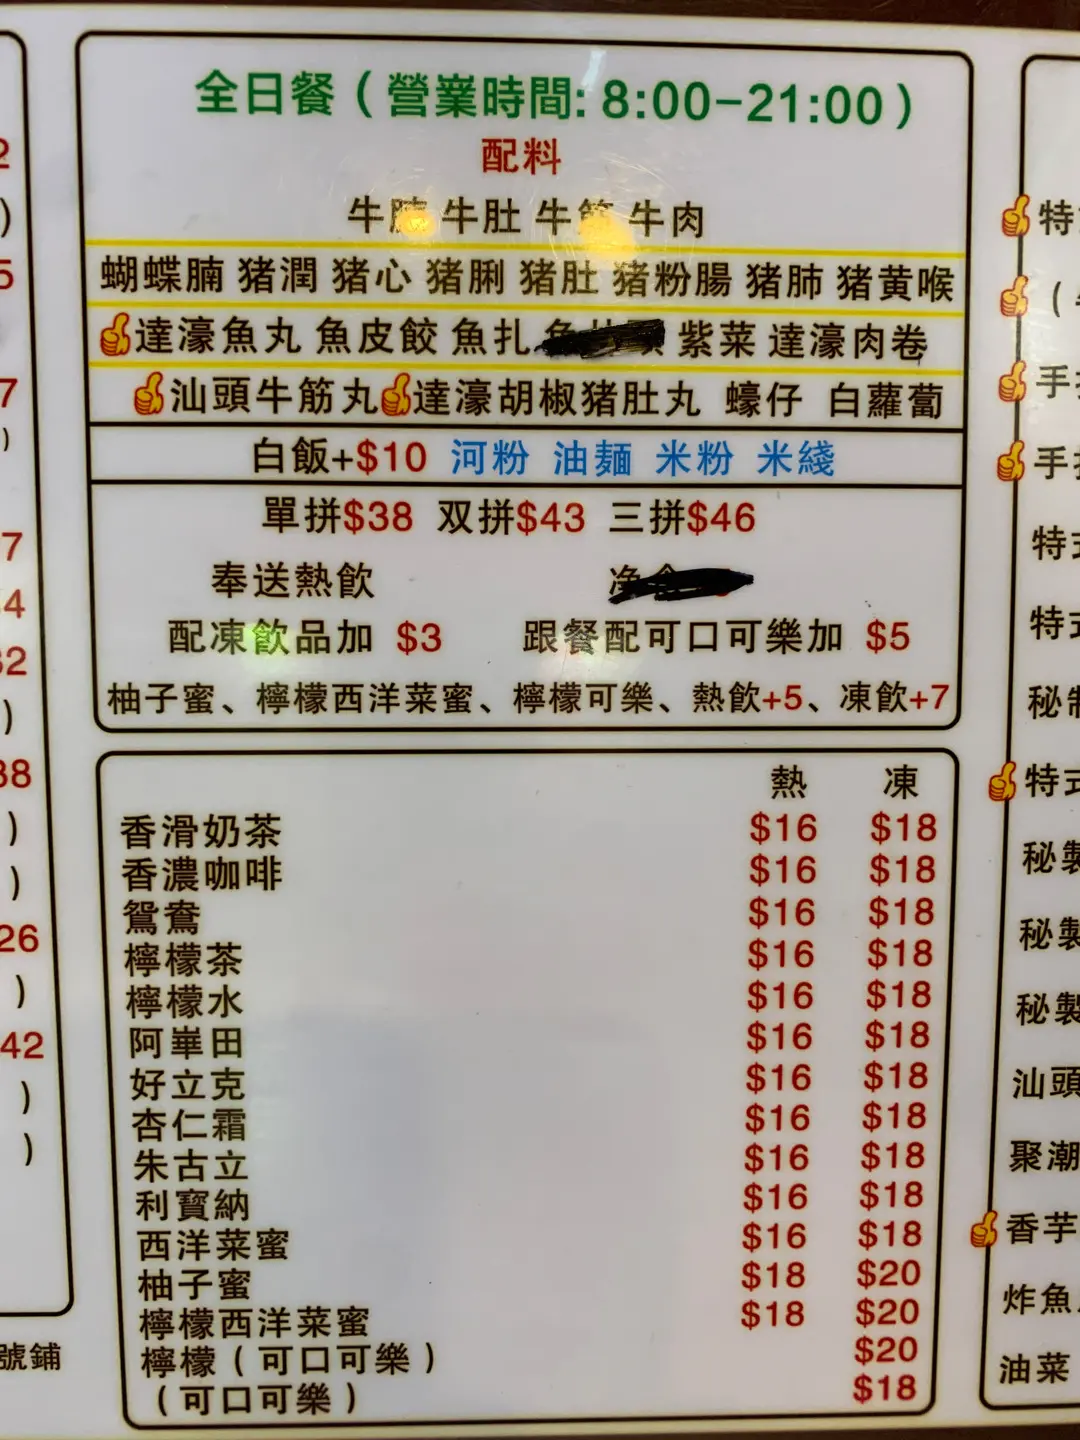 全日餐（營業時間: 8:00-21:00）
配料
牛腩 牛肚 牛筋 牛肉
蝴蝶腩 猪潤 猪心 猪脷 猪肚 猪粉腸 猪肺 猪黄喉
達濠魚丸 魚皮餃 魚扎 紫菜 達濠肉卷
汕頭牛筋丸 達濠胡椒猪肚丸 蠔仔 白蘿蔔
白飯+$10 河粉 油麵 米粉 米綫
單拼$38 双拼$43 三拼$46
奉送熱飲 净
配凍飲品加 $3 跟餐配可口可樂加 $5
柚子蜜、檸檬西洋菜蜜、檸檬可樂、熱飲+5、凍飲+7
熱 凍
香滑奶茶 $16 $18
香濃咖啡 $16 $18
鴛鴦 $16 $18
檸檬茶 $16 $18
檸檬水 $16 $18
阿華田 $16 $18
好立克 $16 $18
杏仁霜 $16 $18
朱古立 $16 $18
利寶納 $16 $18
西洋菜蜜 $16 $18
柚子蜜 $18 $20
檸檬西洋菜蜜 $18 $20
檸檬（可口可樂） $20
（可口可樂） $18
2
)
5
7
)
7
4
32
)
38
)
)
26
)
42
)
)
號鋪
特
（
手
手
特式
特式
秘制
特式
秘製
秘製
秘製
汕頭
聚潮
香芋
炸魚
油菜